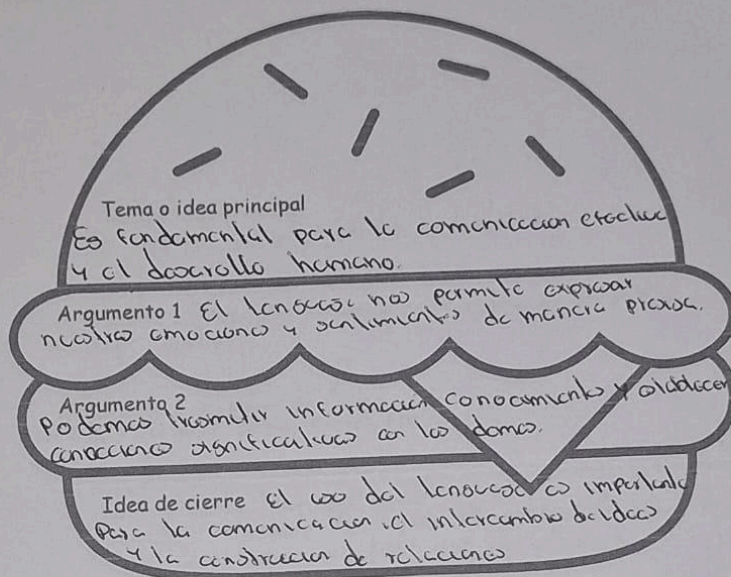 Tema o idea principal
Es fundamental para la comunicacion efectiva
y el desarrollo humano.
Argumento 1 El lenguaje nos permite expresar
nuestras emociones y sentimientos de manera precisa.
Argumento 2
Podemos trasmitir informacion conocimiento y establecer
conecciones significativas con los demas.
Idea de cierre El uso del lenguaje es importante
para la comunicacion, el intercambio de ideas
y la construccion de relaciones